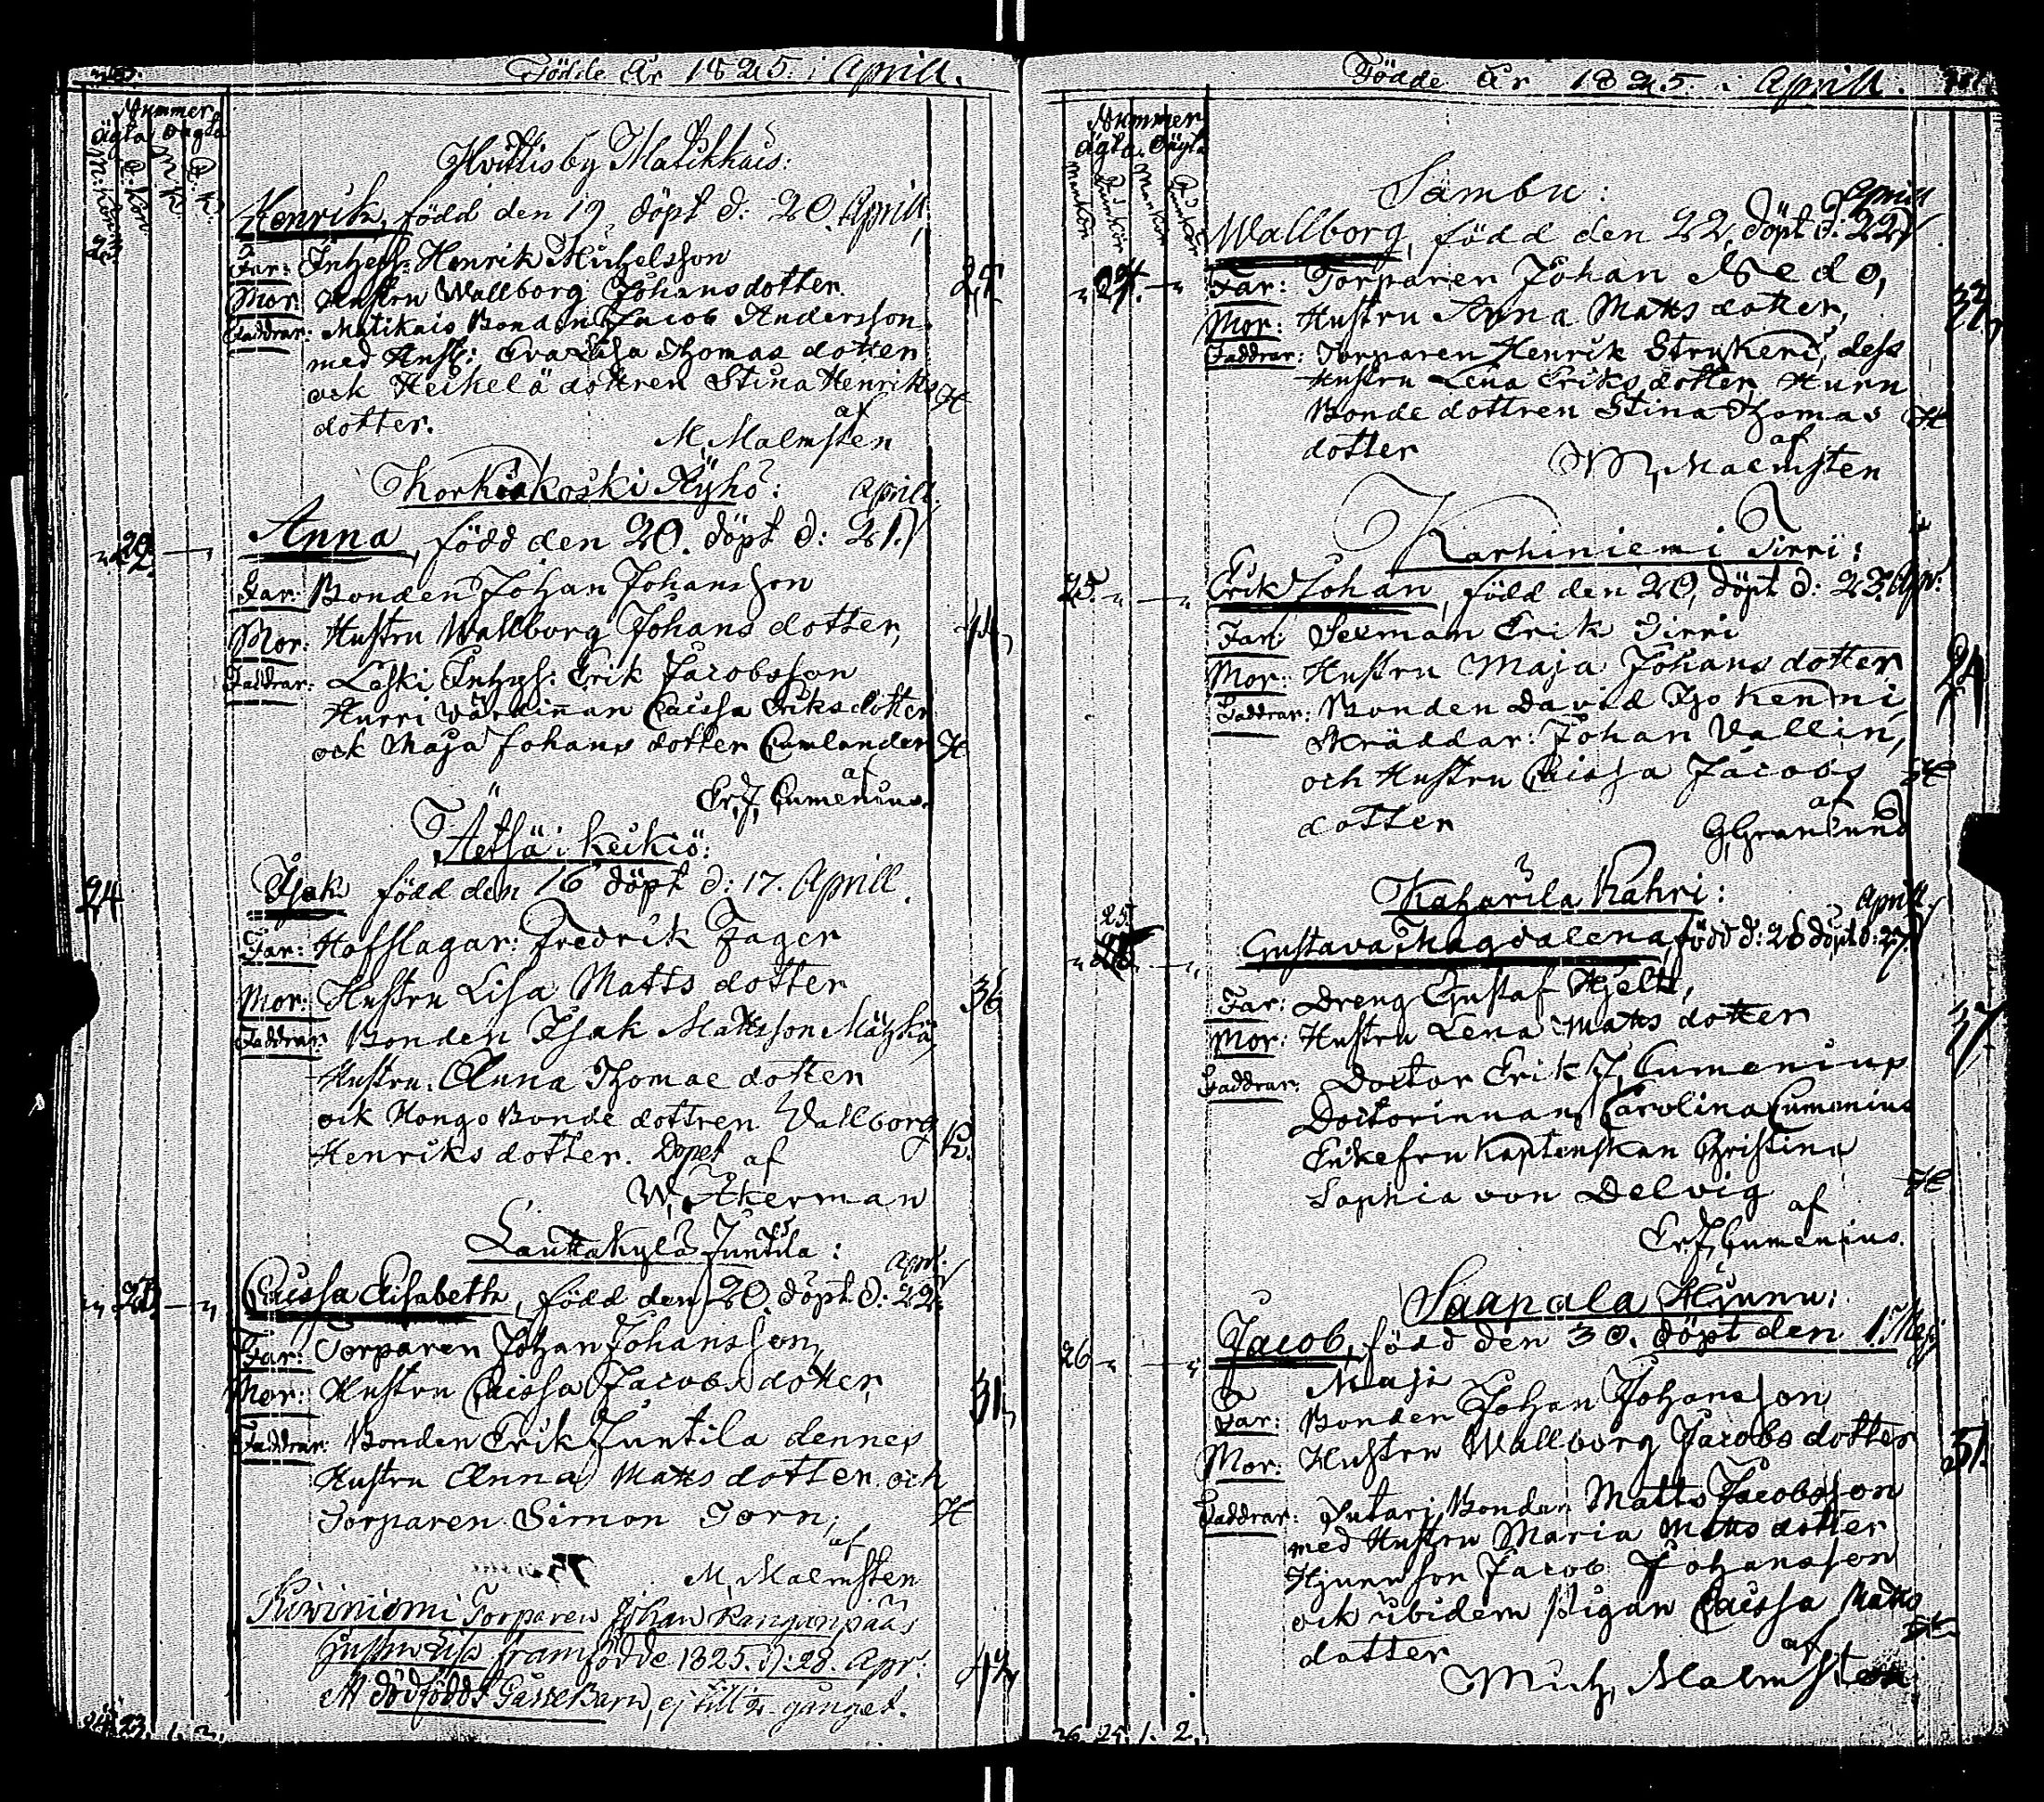 Födde År 1825. i Aprill.
Nummer
ägta oägta
Hvittisby Matikkais:
23.
Henrik, född den 19, döpt d: 20. Aprill,
Far: Inhyss: Henrik Michelsson
Mor: Hustru Wallborg Johansdotter.
Faddrar: Matikais Bonden Jacob Andersson
med Hust: Eva Lisa Thomas dotter
ock Heikelä dottren Stina Henriks
H
dotter.
af
M. Malmsten
Korkiakoski Äyhö:
Aprill.
22. Anna, född den 20. döpt d: 21.
Far: Bonden Johan Johansson
Mor: Hustru Wallborg Johans dotter,
Faddrar: Laski Inhys: Erik Jacobsson
Hurri Värdinnan Caissa Eriksdotter
ock Maja Johans dotter Cumlander
H
af
Er. J. Cumenius.
Äetsä i Keikiö:
24 Isak född den 16 döpt d: 17. Aprill.
Far: Hofslagar: Fredrik Jager
Mor: Hustru Lisa Matts dotter
36
Faddrar: Bonden Isak Mattsson
Hustru. Anna Thomae dotter
ock Hongo Bonde dottren Vallborg
Henriks dotter. Döpet af
K.
W. Åkerman
Lauttakylä Juntila:
Apr.
23. Caissa Elisabeth, född den 20. döpt d: 22.
Far: Torparen Johan Johansson,
Mor: Hustru Caissa Jacobs dotter,
31,
Faddrar: Bonden Erik Juntila dennes
Hustru Anna Matts dotter och
Torparen Simon Torn,
H
af
M. Malmsten
Kiviniemi Torparen Johan Kanganpääs
Hustru Lisa framfödde 1825. d: 28. Apr.
Ett dödfödt Gåsse Barn, ej till gånget.
24. 23. 1. 2.
Födde År 1825. i Aprill.
Nummer
ägta. Oägta
Mankön Qvinkön Mankön Qvinkön
Sambu:
Aprill
24. Wallborg, född den 22, döpt d: 22
Far: Torparen Johan Nedo,
32,
Mor: Hustru Anna Matts dotter,
Faddrar: Torparen Henrik Strykeri, dess
Hustru Lena Eriks dotter, Hunu
Bonde dottren Stina Thomas
H
dotter
af
M. Malmsten
Karhiniemi Pirri:
25. Erik Johan, född den 20, döpt d: 23. Apr:
Far: Seeman Erik Pirri
Mor: Hustru Maja Johans dotter
24
Faddrar: Bonden David
Skräddar: Johan Vallin,
och Hustru Caissa Jacobs
H
dotter
af
G. Granlund
Kaharila Kahri:
Aprill
25. Gustava Magdalena, född d: 26 döpt d: 27
Far: Dreng Gustaf Hjelt,
Mor: Hustru Lena Matts dotter
37.
Faddrar: Doctor Erik J. Cumenius
Doctorinnan Carolina Cumenius
Enkefru Kaptenskan Christina
Sophia von Delvig
H
af
Er. J. Cumenius.
Saapala Hjunu:
26 Jacob, född den 30. döpt den 1. Maji
Maji
Far: Bonden Johan Johansson
Mor: Hustru Wallborg Jacobs dotter
31.
Faddrar: Bonden Matts Jacobsson
med Hustru Maria Matts dotter
Hjunu son Jacob Johansson
ock ibidem Pigan Caissa Matts
dotter
af
Mich. Malmsten
26 25. 1. 2.